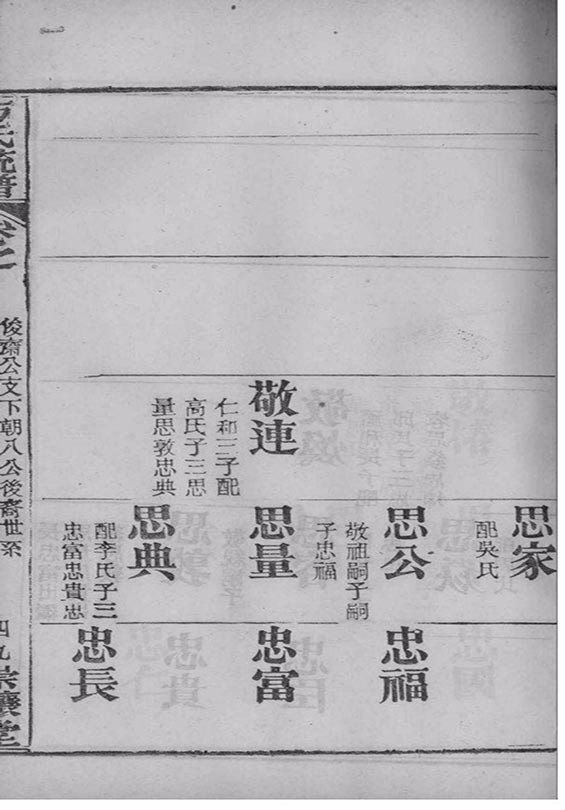 敬連
仁和三子配
高氏子三思
量思敦忠典
思家
配吳氏
思公
敬祖嗣子嗣
子忠福
思量
思典
配李氏子三
忠富忠貴忠
忠福
忠富
忠長
俊齋公支下朝八公後裔世系
四九